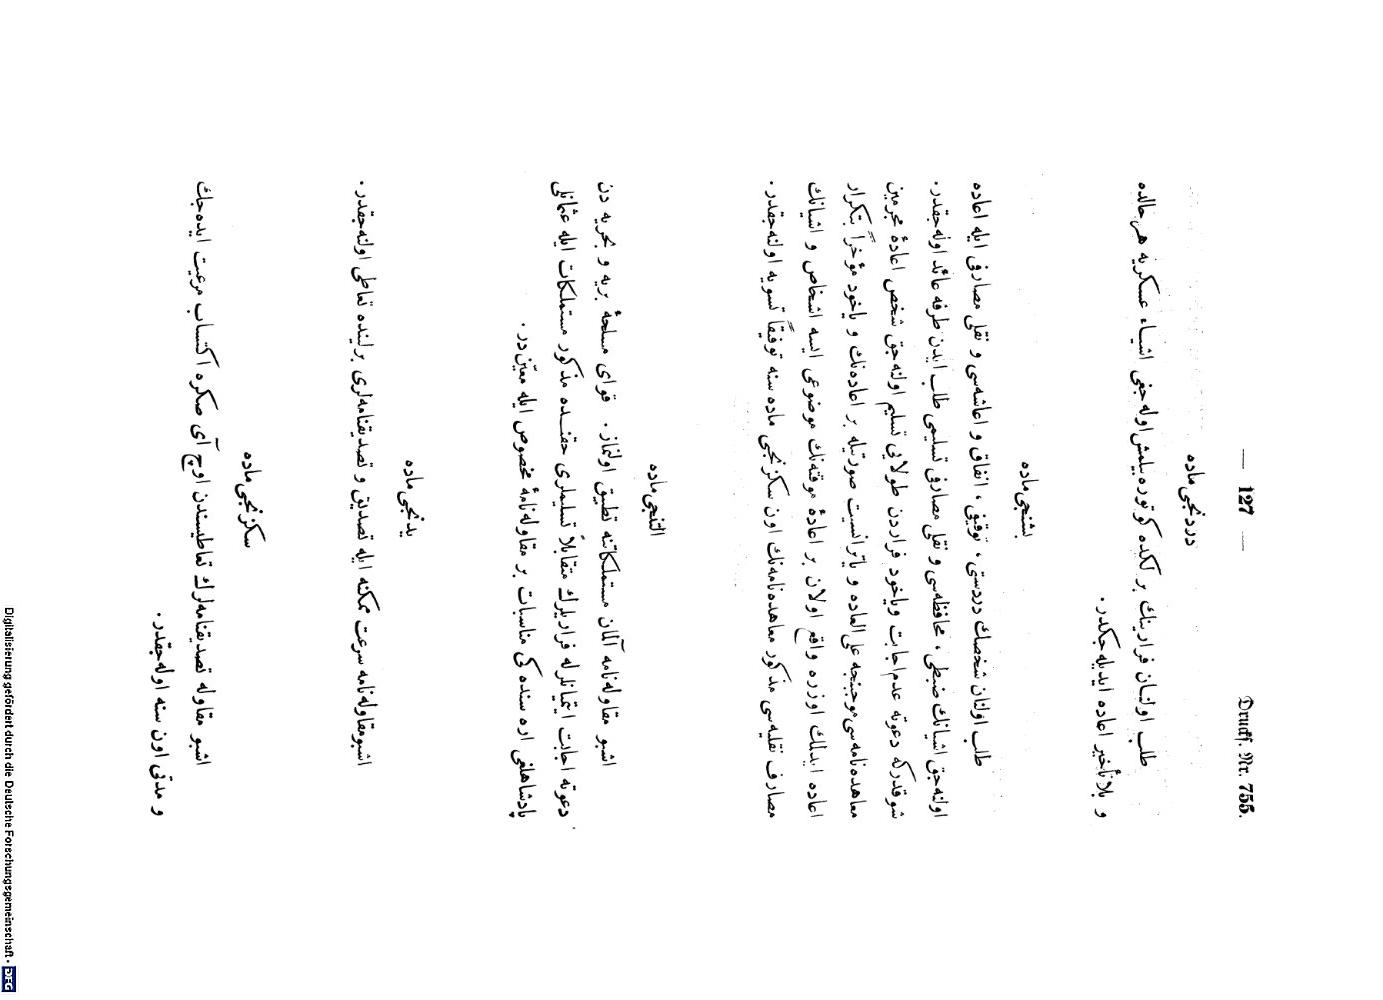 — 127 —
Druckf. Nr. 755.
دردنجی ماده
طلب اولنان فرارینك بر لکده کوتوره بیلمش اوله جغی اشیاء عسکریه هر حالده
و بلا تأخیر اعاده ایدیله جکدر .
بشنجی ماده
طلب اولنان شخصك دردستی ، توقیفی ، انفاق و اعاشه سی و نقلی مصارفی ایله اعاده
اولنه جق اشیانك ضبطی ، محافظه سی و نقلی مصارفی تسلیمی طلب ایدن طرفه عائد اوله جقدر .
شو قدرکه دعوته عدم اجابت ویاخود فراردن طولایی تسلیم اولنه جق شخص اعادهٔ مجرمین
معاهده نامه سی موجبنجه علی العاده و یا ترانسیت صورتیله بر اعاده نك و یاخود مؤخراً بتکرار
اعاده ایدلمك اوزره واقع اولان بر اعادهٔ موقته نك موضوعی ایسه اشخاص و اشیانك
مصارف نقلیه سی مذکور معاهده نامه نك اون سکزنجی ماده سنه توفیقاً تسویه اولنه جقدر .
التنجی ماده
اشبو مقاوله نامه آلمان مستملکاتنه تطبیق اولنماز . قوای مسلحهٔ بریه و بحریه دن
دعوته اجابت ایتمیانلرله فراریلرك متقابلاً تسلیملری حقنده مذکور مستملکات ایله عثمانلی
پادشاهلغی اره سنده کی مناسبات بر مقاوله نامهٔ مخصوص ایله معیّن در .
یدنجی ماده
اشبو مقاوله نامه سرعت ممکنه ایله تصدیق و تصدیقنامه لری برلینده تعاطی اولنه جقدر .
سکزنجی ماده
اشبو مقاوله تصدیقنامه لرك تعاطیسندن اوچ آی صکره اکتساب مرعیت ایده جك
و مدتی اون سنه اوله جقدر .
Digitalisierung gefördert durch die Deutsche Forschungsgemeinschaft - DFG